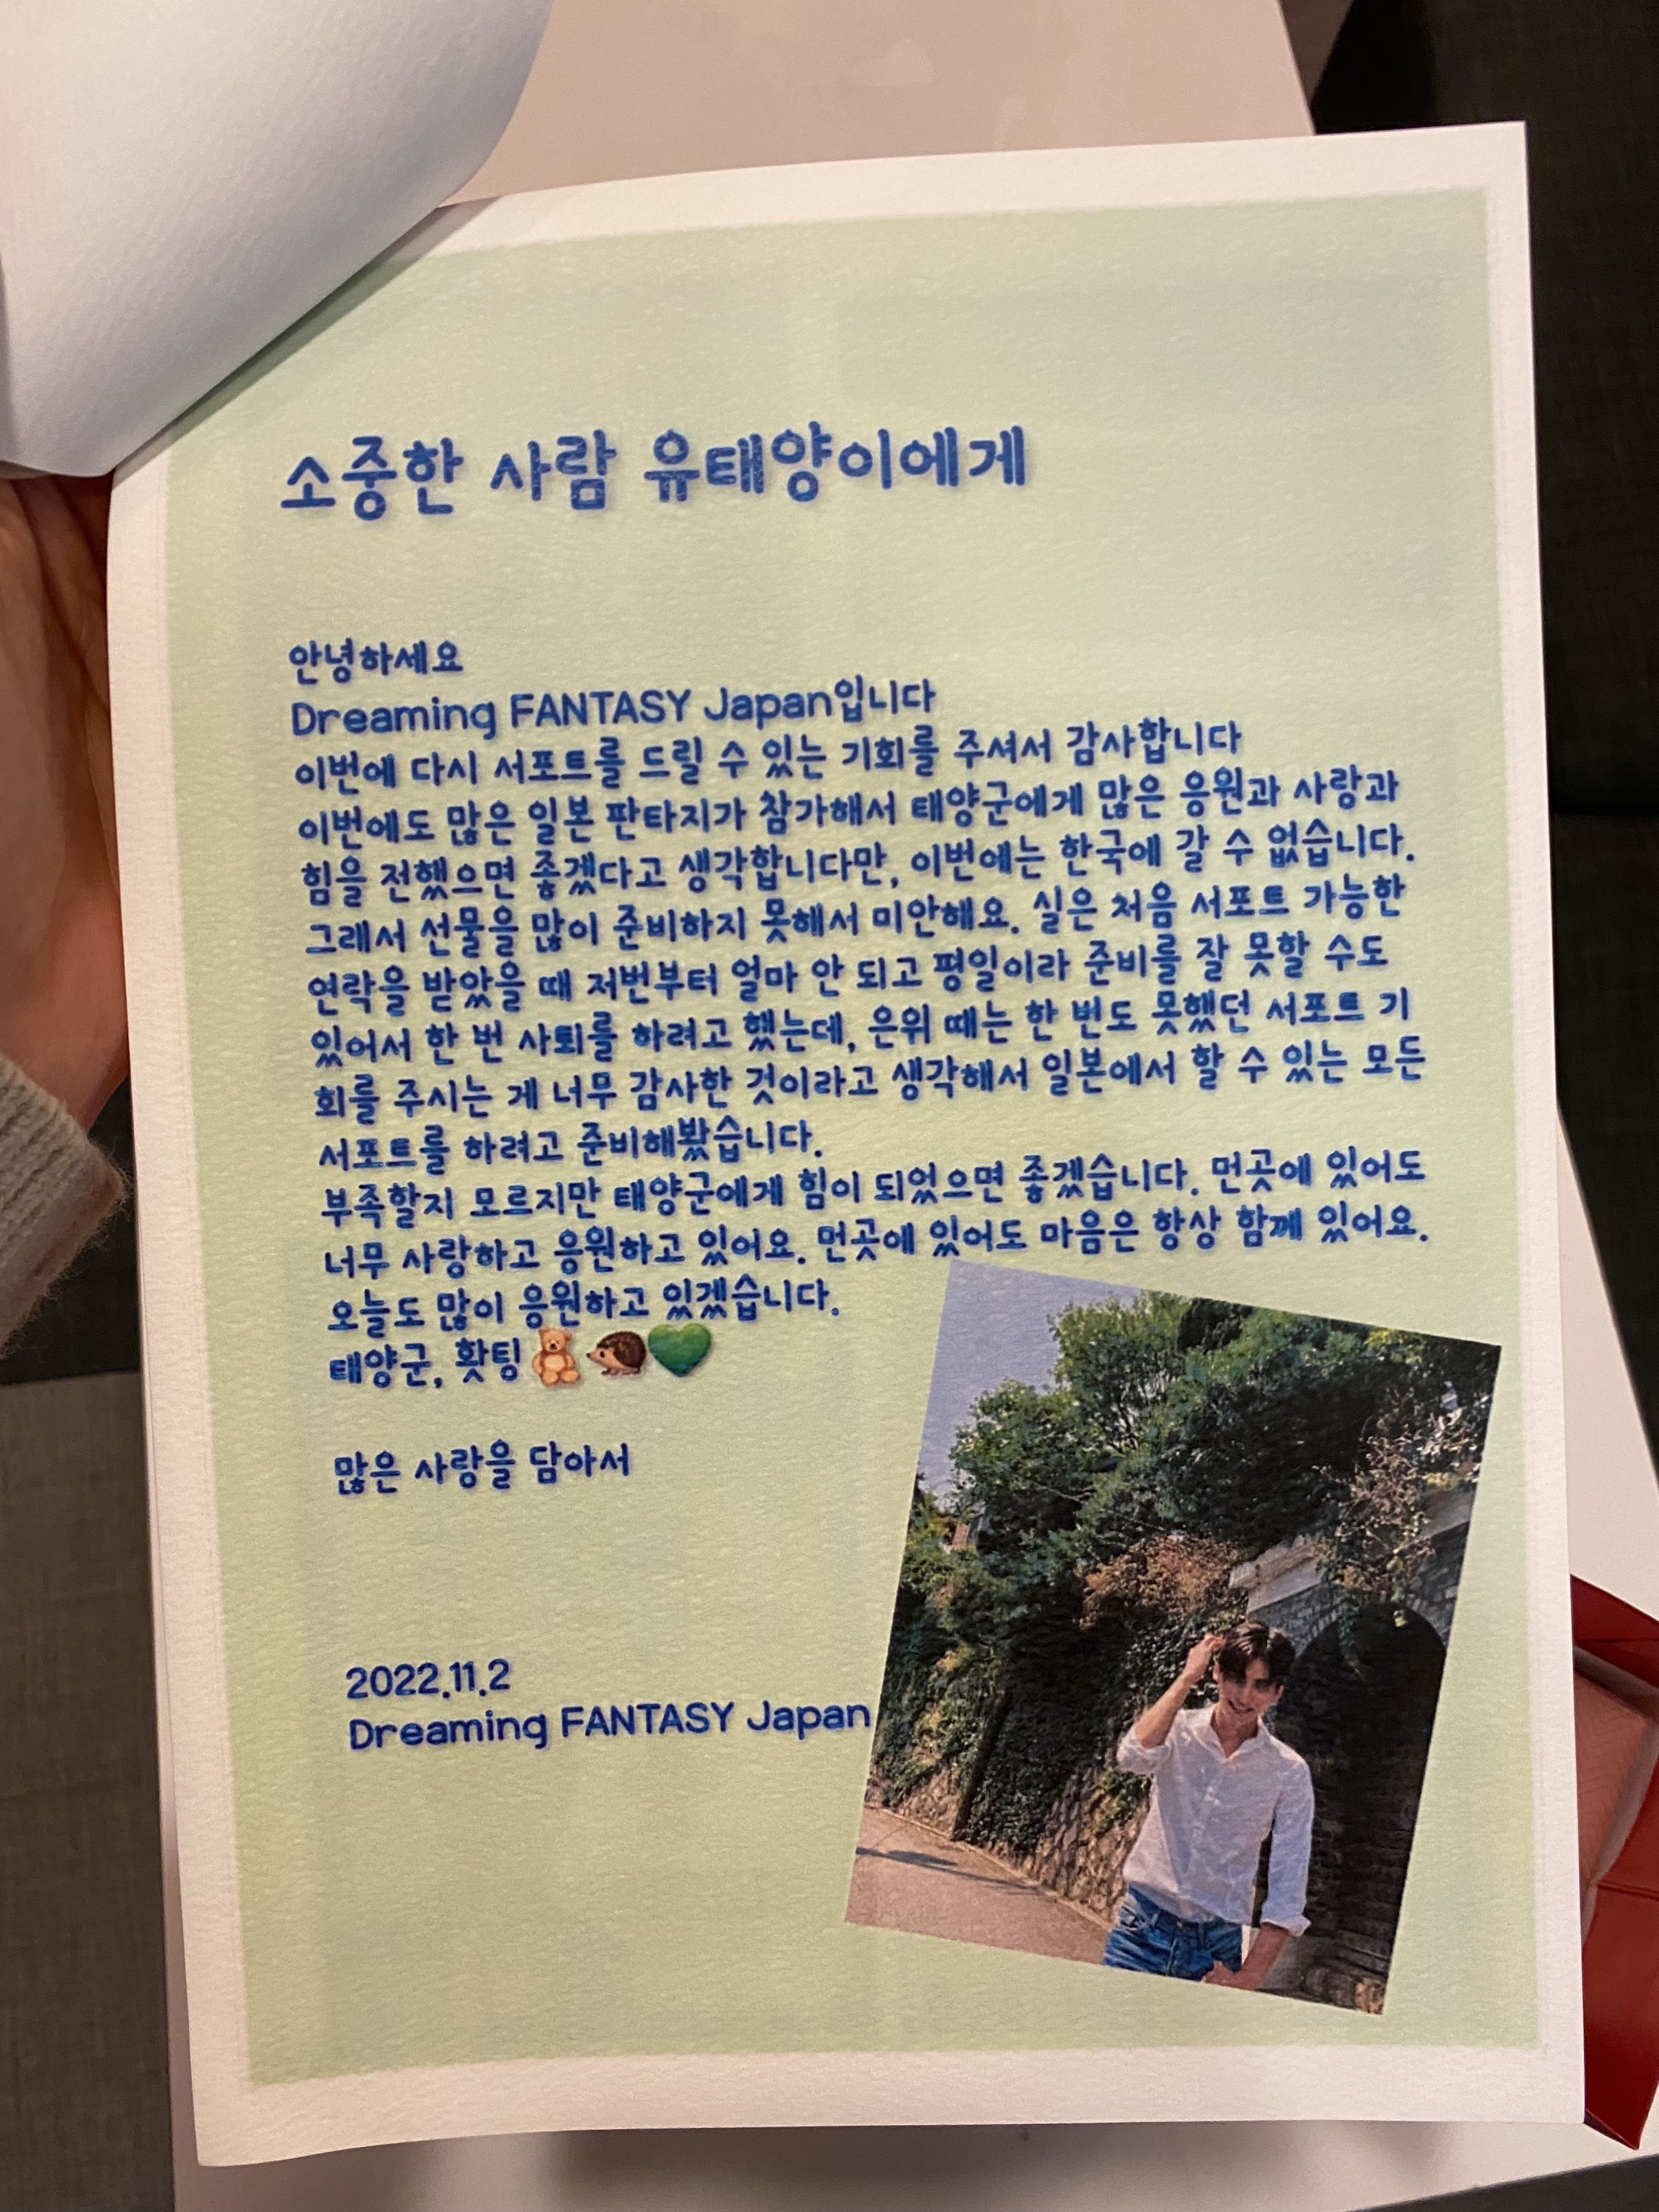 소중한 사람 유태양이에게
안녕하세요
Dreaming FANTASY Japan입니다
이번에 다시 서포트를 드릴 수 있는 기회를 주셔서 감사합니다
이번에도 많은 일본 판타지가 참가해서 태양군에게 많은 응원과 사랑과
힘을 전했으면 좋겠다고 생각합니다만, 이번에는 한국에 갈 수 없습니다.
그래서 선물을 많이 준비하지 못해서 미안해요. 실은 처음 서포트 가능한
연락을 받았을 때 저번부터 얼마 안 되고 평일이라 준비를 잘 못할 수도
있어서 한 번 사퇴를 하려고 했는데, 은위 때는 한 번도 못했던 서포트 기
회를 주시는 게 너무 감사한 것이라고 생각해서 일본에서 할 수 있는 모든
서포트를 하려고 준비해봤습니다.
부족할지 모르지만 태양군에게 힘이 되었으면 좋겠습니다. 먼곳에 있어도
너무 사랑하고 응원하고 있어요. 먼곳에 있어도 마음은 항상 함께 있어요.
오늘도 많이 응원하고 있겠습니다.
태양군, 홧팅🧸🦔💚
많은 사랑을 담아서
2022.11.2
Dreaming FANTASY Japan